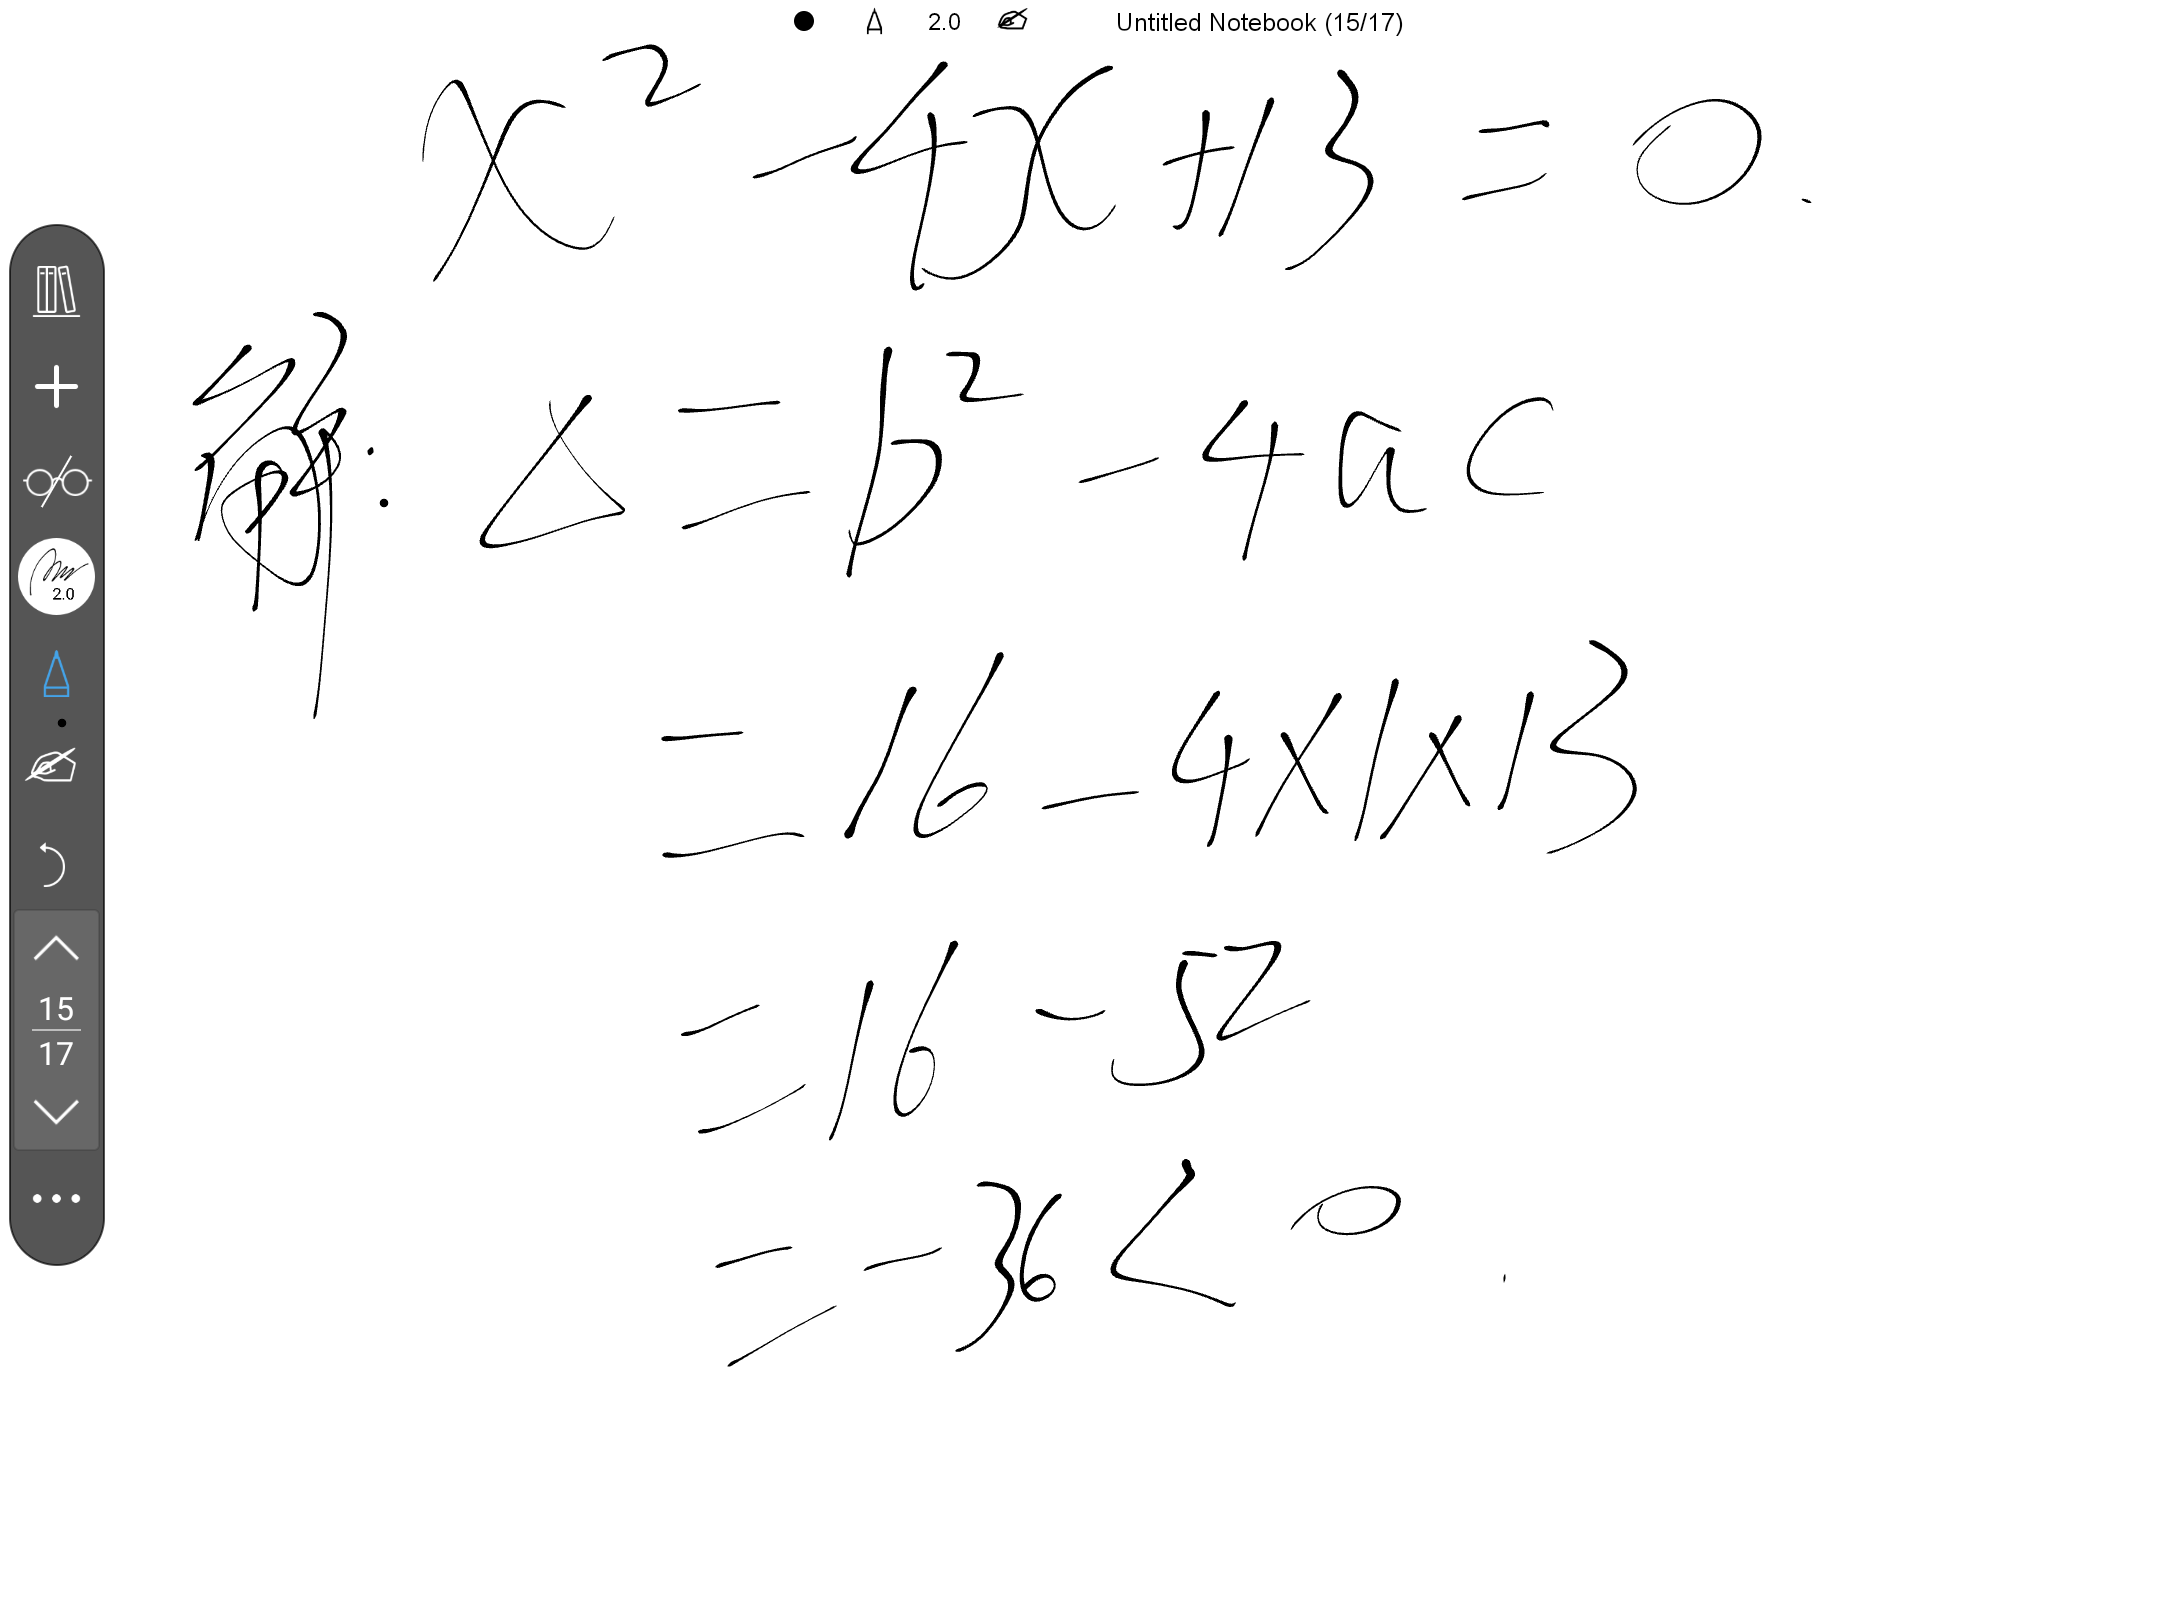 2.0 Untitled Notebook (15/17)
x² -4x +13 = 0.
解: Δ = b² - 4ac
= 16 - 4×1×13
= 16 - 52
= -36 < 0
2.0
15
17